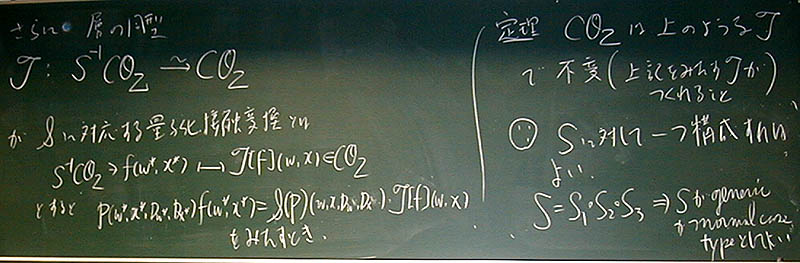 さらに 層の同型
𝒯 : S⁻¹CO₂ ≃→ CO₂
が 𝒮 に対応する量子化接触変換とは
S⁻¹CO₂ ∋ f(w*, x*) ⟼ 𝒯[f](w, x) ∈ CO₂
とすると P(w*, x*, D_w*, D_x*) f(w*, x*) = 𝒮(P)(w, x, D_w, D_x)・𝒯[f](w, x)
をみたすとき.
定理 CO₂ は上のような 𝒯
で不変(上記をみたす 𝒯 が
つくれること
∵) S に対して一つ構成すれば
よい.
S = S₁∘S₂∘S₃ ⇒ S が generic
かつ normal case
type としてよい